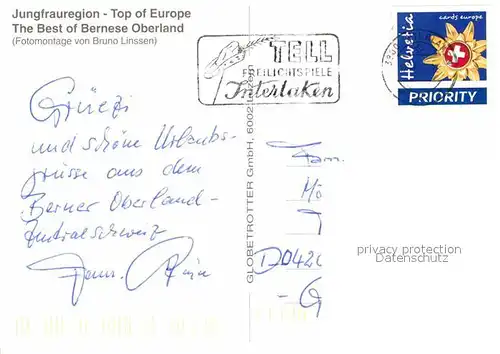 Jungfrauregion - Top of Europe
The Best of Bernese Oberland
(Fotomontage von Bruno Linssen)
TELL
FREILICHTSPIELE
Interlaken
Helvetia
cards europe
PRIORITY
Grüezi
und schöne Urlaubs-
grüsse aus dem
Berner Oberland-
Zentralschweiz
Fam.
GLOBETROTTER GmbH, 6002 Luzern
Fam.
Mö
D0420
- G
privacy protection
Datenschutz